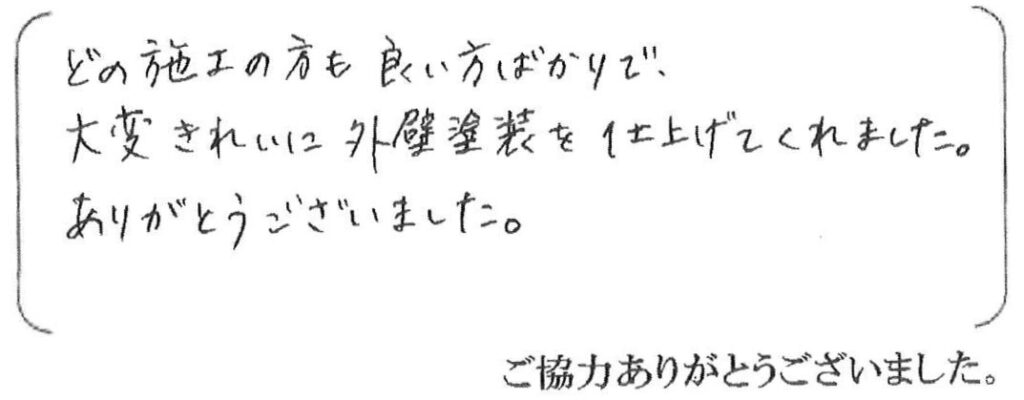 どの施工の方も良い方ばかりで、
大変きれいに外壁塗装を仕上げてくれました。
ありがとうございました。
ご協力ありがとうございました。